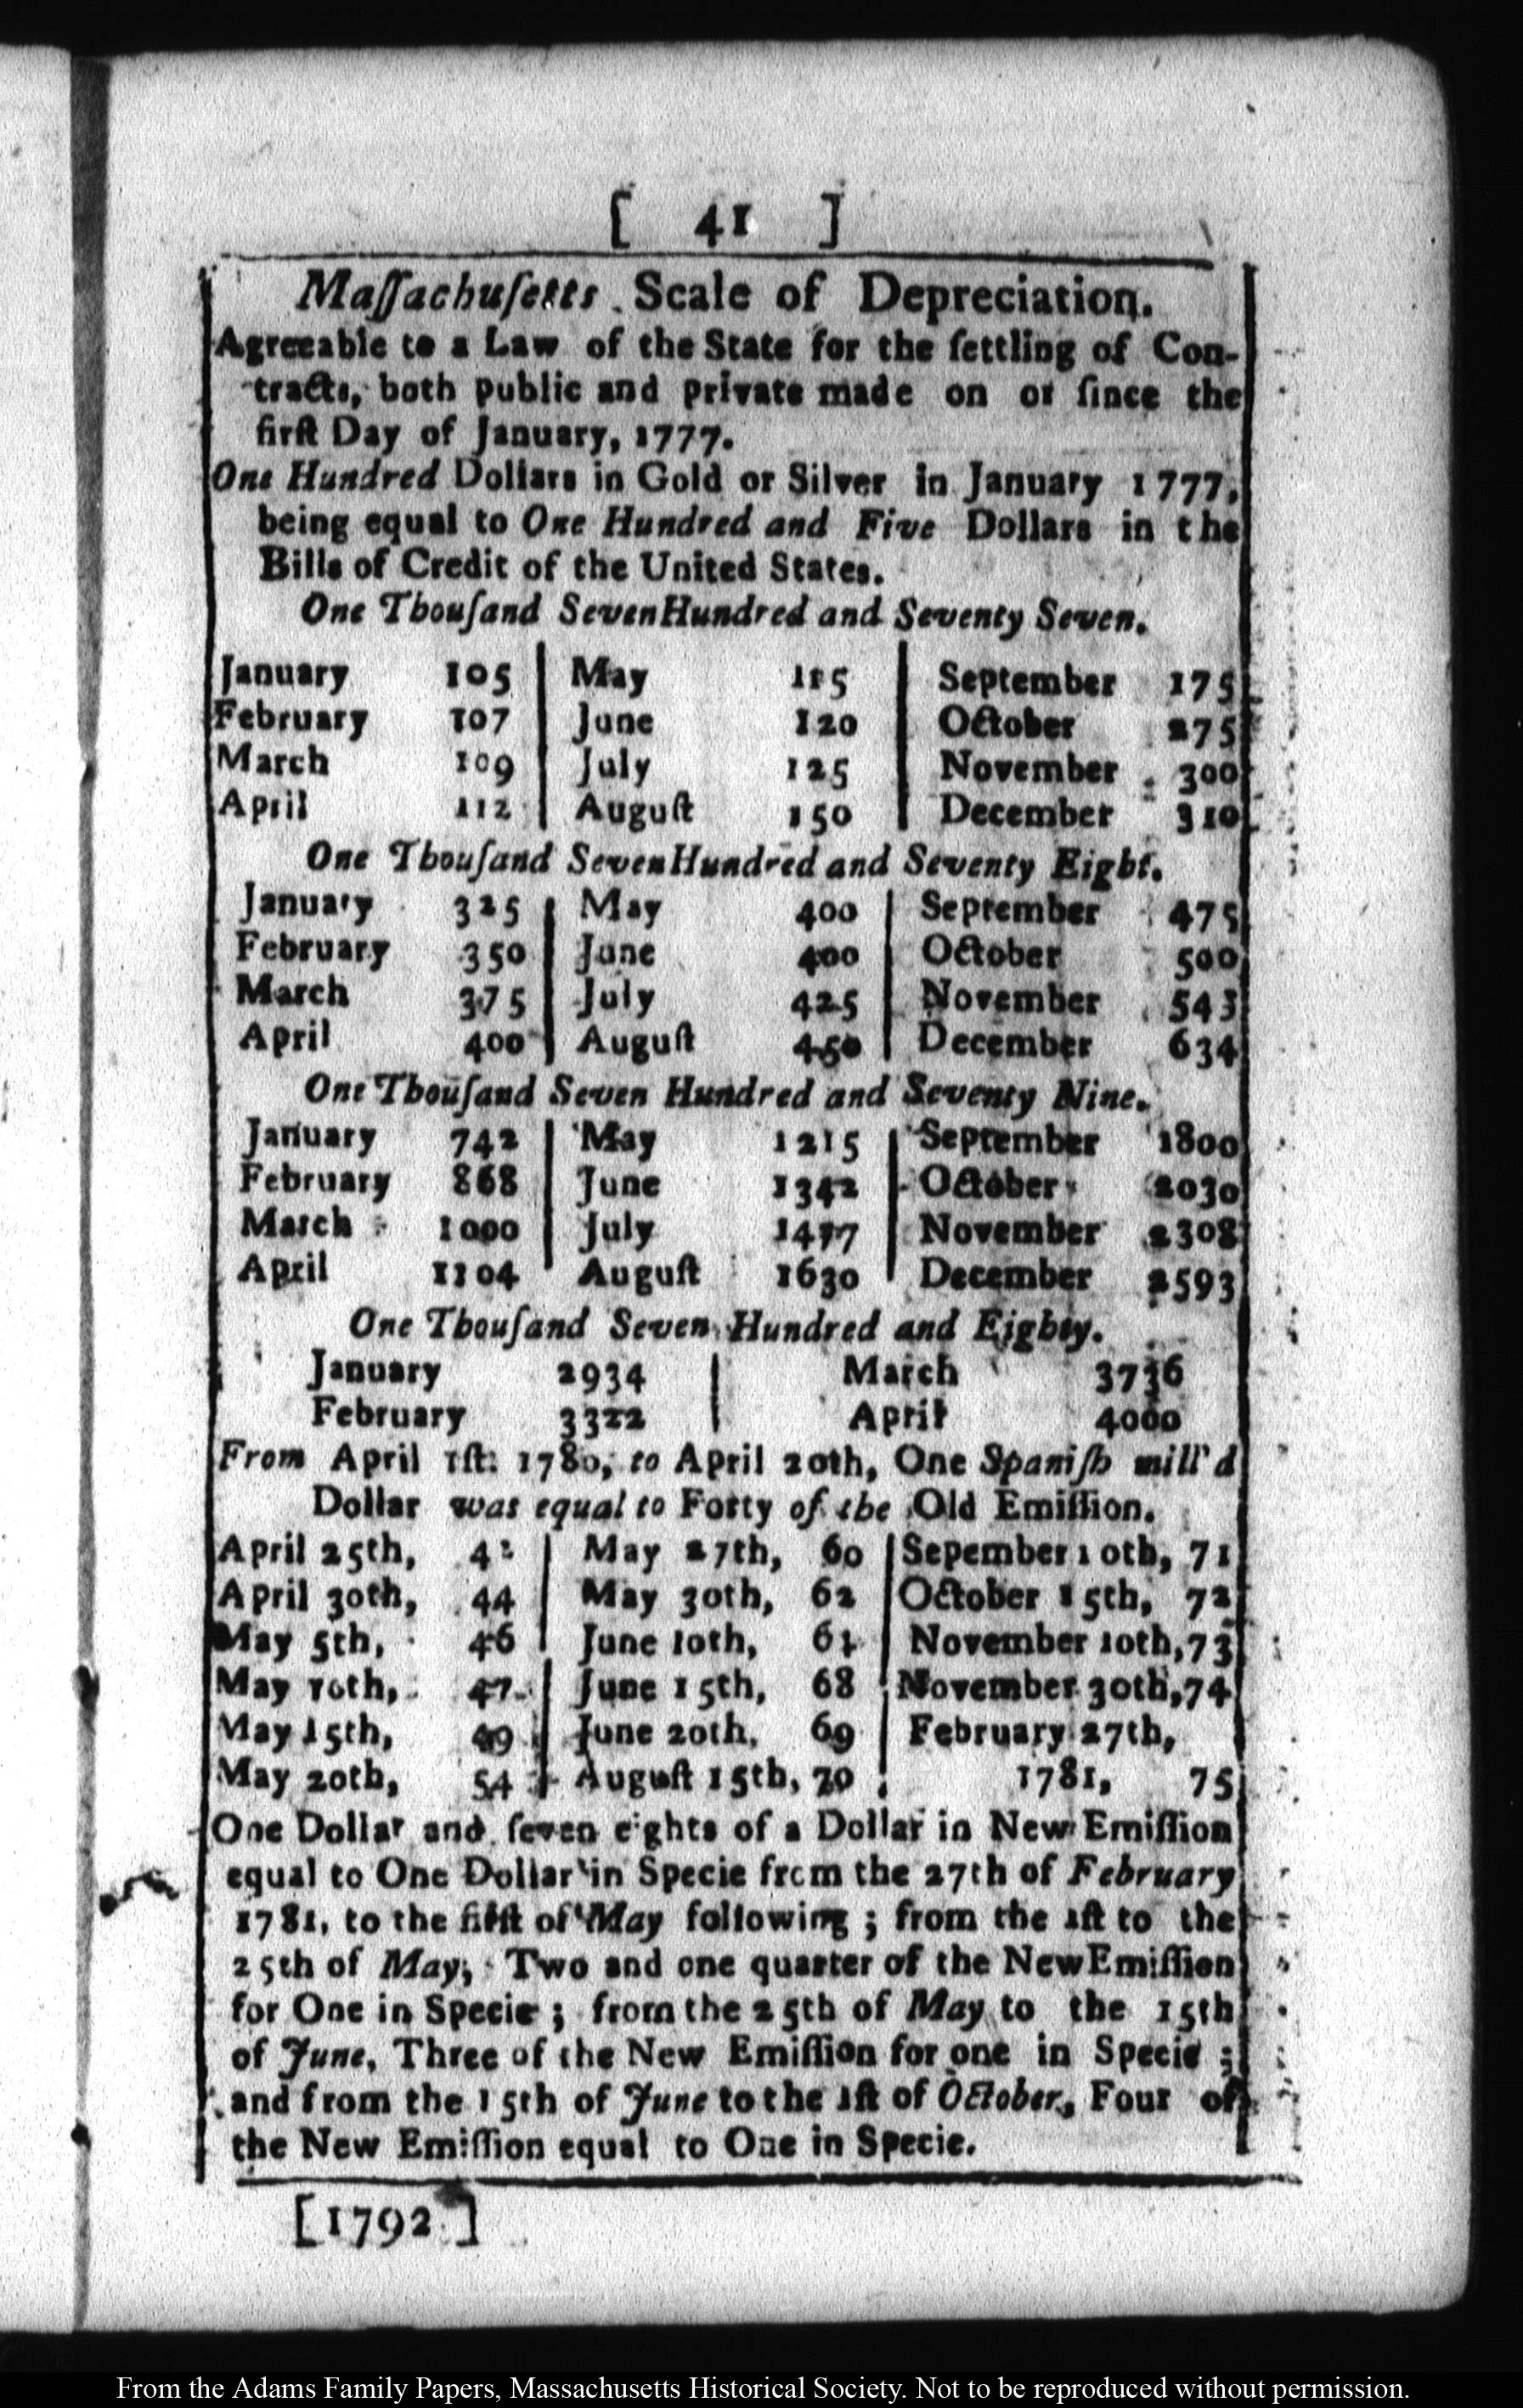 [ 41 ]
Maſſachuſetts Scale of Depreciation.
Agreeable to a Law of the State for the ſettling of Con-
tracts, both public and private made on or ſince the
firſt Day of January, 1777.
One Hundred Dollars in Gold or Silver in January 1777,
being equal to One Hundred and Five Dollars in the
Bills of Credit of the United States.
One Thouſand Seven Hundred and Seventy Seven.
January 105 | May 115 | September 175
February 107 | June 120 | October 275
March 109 | July 125 | November 300
April 112 | Auguſt 150 | December 310
One Thouſand Seven Hundred and Seventy Eight.
January 325 | May 400 | September 475
February 350 | June 400 | October 500
March 375 | July 425 | November 543
April 400 | Auguſt 450 | December 634
One Thouſand Seven Hundred and Seventy Nine.
January 742 | May 1215 | September 1800
February 868 | June 1342 | October 2030
March 1000 | July 1477 | November 2308
April 1104 | Auguſt 1630 | December 2593
One Thouſand Seven Hundred and Eighty.
January 2934 | March 3736
February 3322 | April 4000
From April 1ſt. 1780, to April 20th, One Spaniſh mill'd
Dollar was equal to Forty of the Old Emiſſion.
April 25th, 42 | May 27th, 60 | Sepember 10th, 71
April 30th, 44 | May 30th, 62 | October 15th, 72
May 5th, 46 | June 10th, 64 | November 10th, 73
May 10th, 47 | June 15th, 68 | November 30th, 74
May 15th, 49 | June 20th, 69 | February 27th,
May 20th, 54 | Auguſt 15th, 70 | 1781, 75
One Dollar and ſeven eights of a Dollar in New Emiſſion
equal to One Dollar in Specie from the 27th of February
1781, to the firſt of May following ; from the 1ſt to the
25th of May, Two and one quarter of the New Emiſſion
for One in Specie ; from the 25th of May to the 15th
of June, Three of the New Emiſſion for one in Specie ;
and from the 15th of June to the 1ſt of October, Four of
the New Emiſſion equal to One in Specie.
[1792 ]
From the Adams Family Papers, Massachusetts Historical Society. Not to be reproduced without permission.